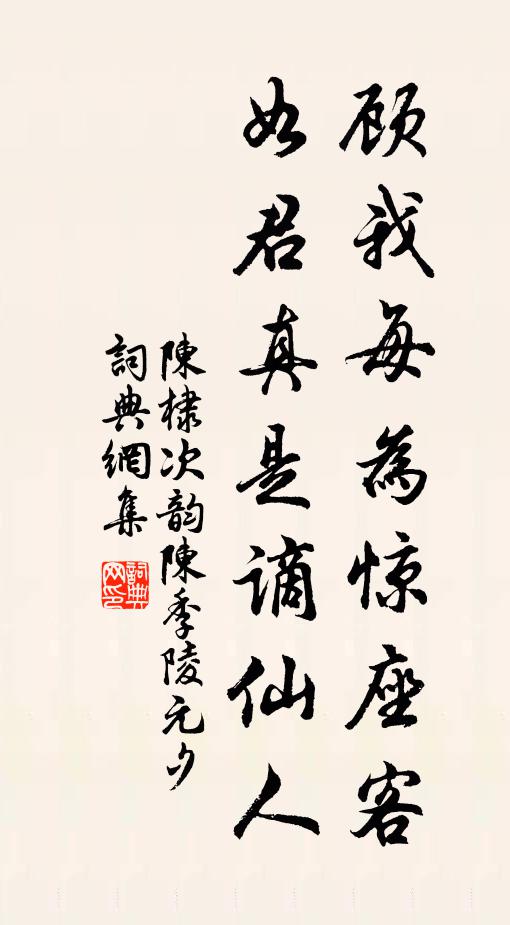 顾我每為惊座客
如君真是谪仙人
陳棣次韵陳季陵元夕
詞典網集
詞典网印